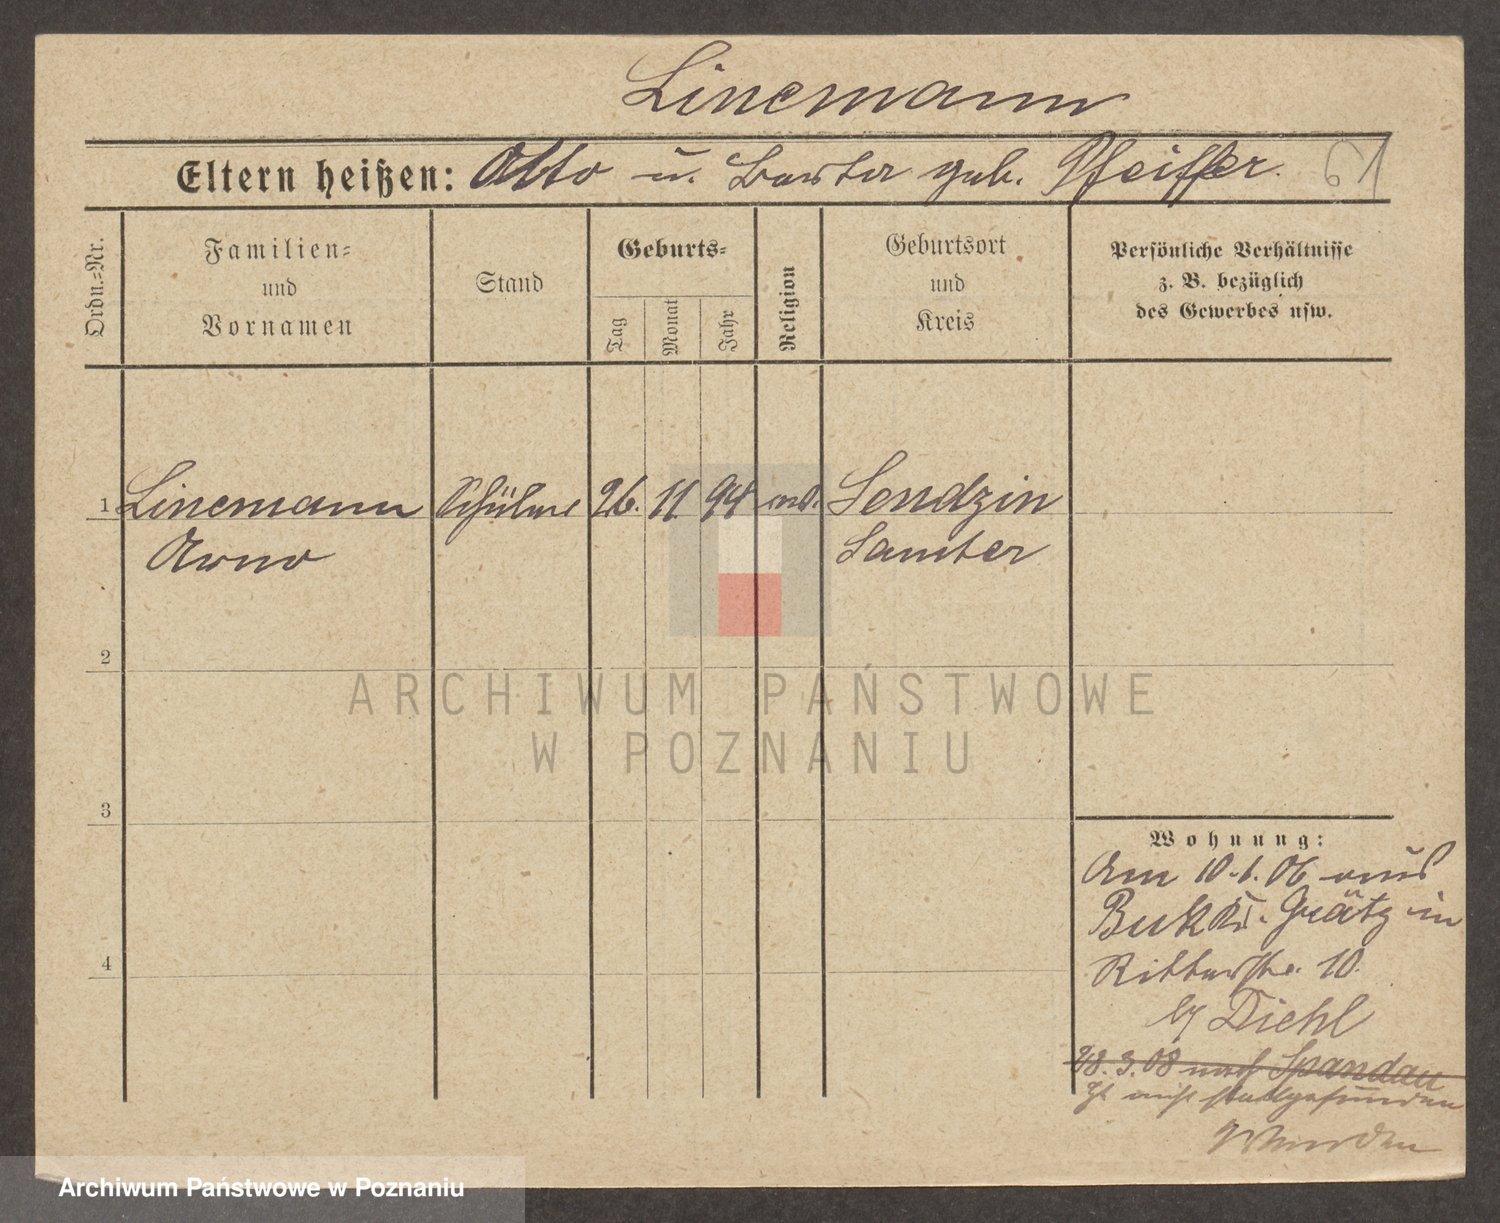 Linemann
Eltern heißen: Otto u. Berta geb. Pfeiffer. 61
Ordn.-Nr.
Familien-
und
Vornamen
Stand
Geburts-
Tag
Monat
Jahr
Religion
Geburtsort
und
Kreis
Persönliche Verhältnisse
z. B. bezüglich
des Gewerbes usw.
1 Linemann Schüler 26. 11. 94 Sendzin
Arno Samter
2
ARCHIWUM PAŃSTWOWE
W POZNANIU
3
Wohnung:
Am 10.1.06 aus
Buk Kr. Grätz in
4
Ritterstr. 10.
Diehl
28.3.08 nach Spandau
Ist nicht stattgefunden
Archiwum Państwowe w Poznaniu